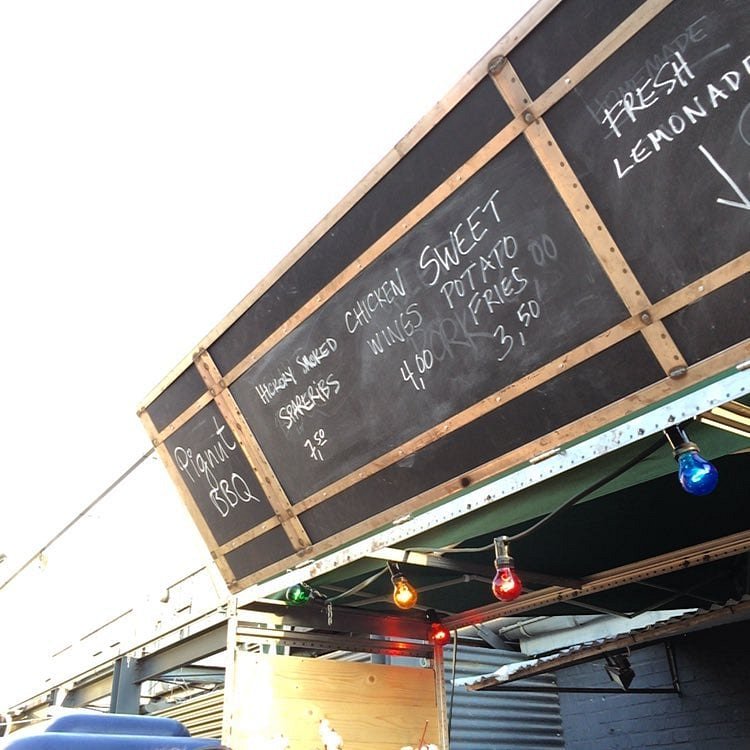 Pignut
BBQ
HICKORY SMOKED
SPARERIBS
7,50
CHICKEN
WINGS
4,00
SWEET
POTATO
FRIES
3,50
PORK
00
HOMEMADE
FRESH
LEMONADE